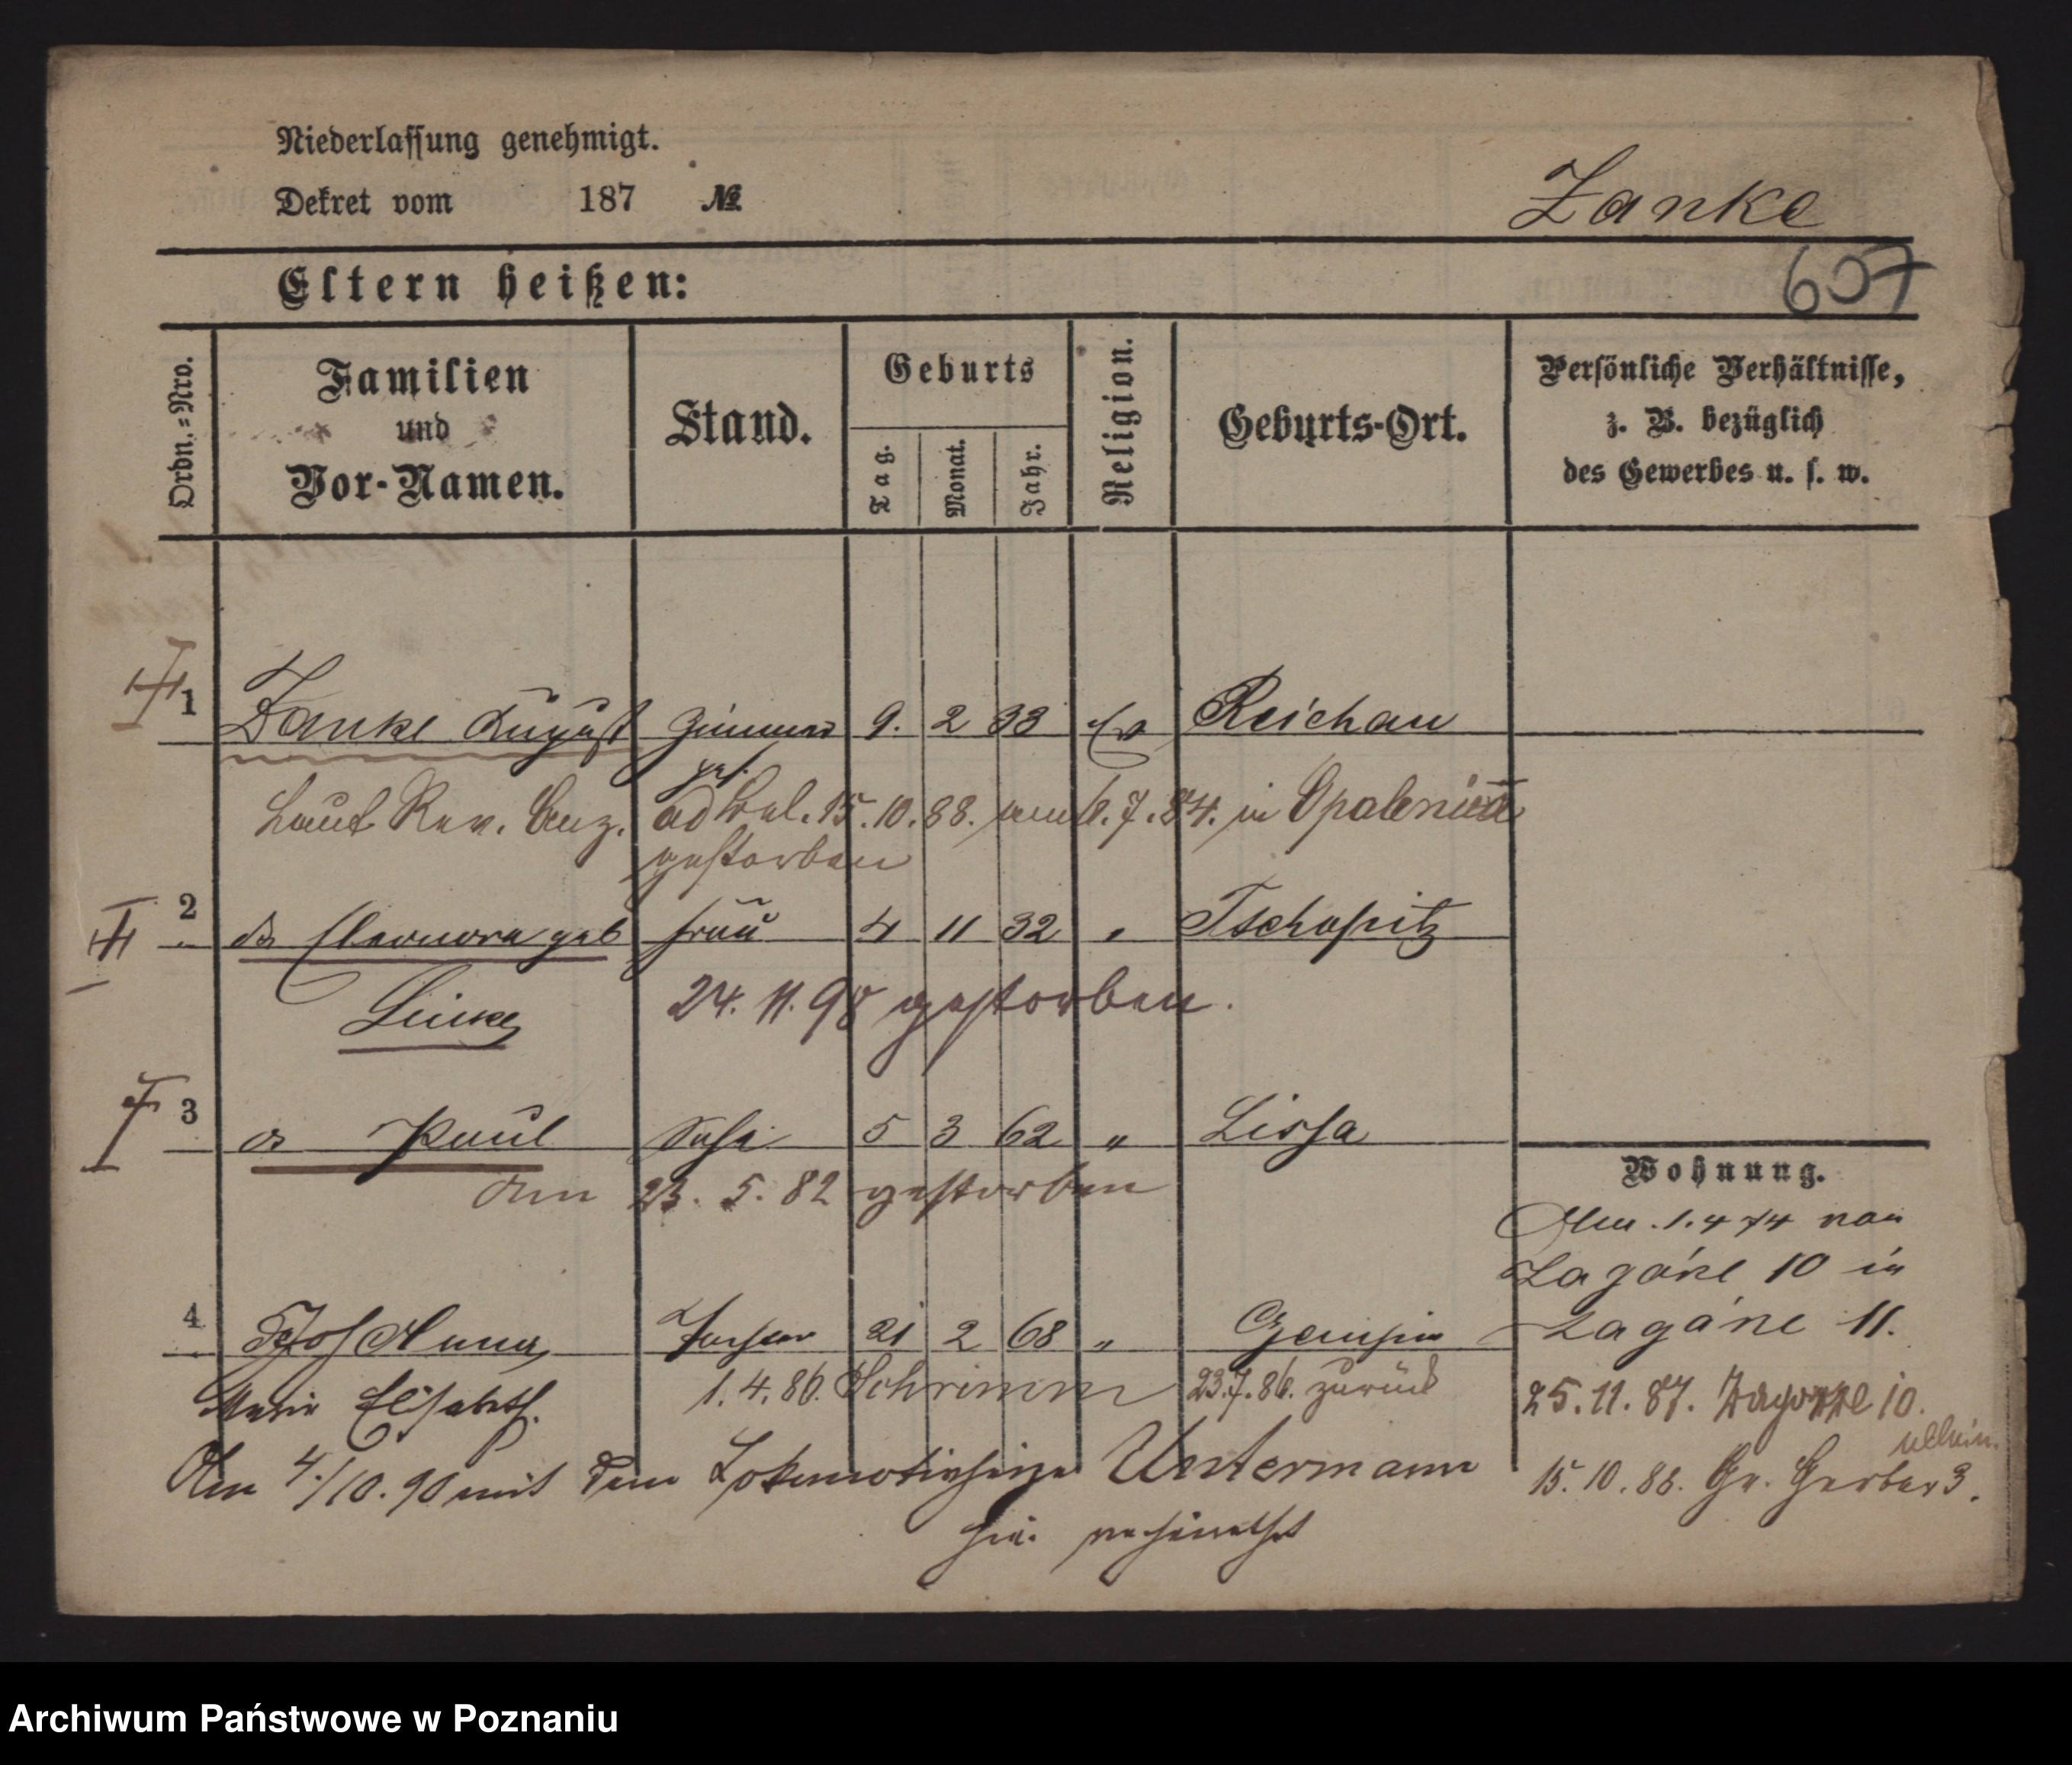 Niederlassung genehmigt.
Dekret vom 187 №
Zanke
607
Eltern heißen:
Ordn.=Nro.
Familien und Vor-Namen.
Stand.
Geburts
Tag. Monat. Jahr.
Religion.
Geburts-Ort.
Persönliche Verhältnisse,
z. B. bezüglich
des Gewerbes u. s. w.
1 Zanke August 9. 2 33 Ev Reichau
ges.
Laut Rev. Anz. ad 15.10.88. am 7.84. in Opalenica
gestorben
2 do Eleonora geb Frau 4 11 32 " Tschopitz
24. 11. 98 gestorben.
3 do Paul Sohn 5 3 62 " Lissa
Am 23. 5. 82 gestorben
Wohnung.
Am 1.4 74 von
Zagórze 10 in
Zagórze 11.
4 Anna Tochter 21 2 68 " Czempin
Marie Elisabeth. 1.4.86. Schrimm 23.7.86. zurück
25.11.87. Zagorze 10.
allein.
15.10.88. Gr. Gerber 3.
Am 4./10.90 mit dem Unstermann
hier verheirathet